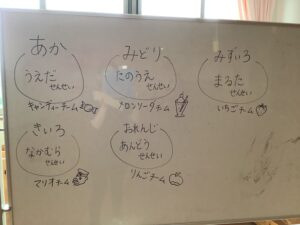 あか
うえだ
せんせい
キャンディーチーム
みどり
たのうえ
せんせい
メロンソーダチーム
みずいろ
まるた
せんせい
いちごチーム
きいろ
なかむら
せんせい
マリオチーム
おれんじ
あんどう
せんせい
りんごチーム